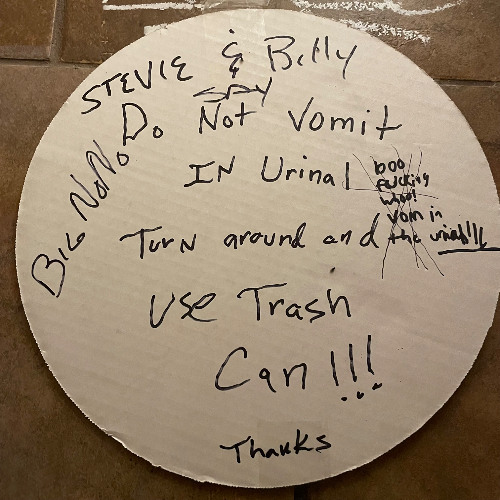 STEVIE & Billy
SAY
Do Not Vomit
IN Urinal
Turn around and
use Trash
Can!!!
Thanks
BIG NoNo
boo
fucking
whoo!
Vom in
the urinal!!!